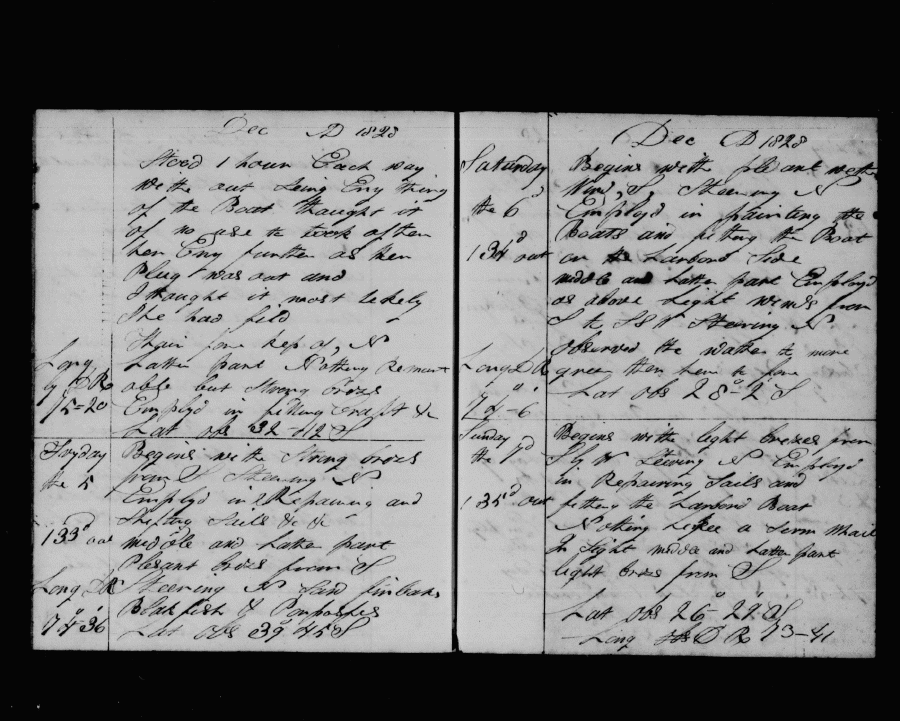 Dec AD 1828
Stood 1 hour Each way
with out Seing Eny thing
of the Boat thought it
of no use to look after
her Eny further as her
Plug was out and
I thought it most likely
She had fild
Thair fore kep as, N
Long Latter part Nothing Remark
by D R able but Strong brezes
75=20 Employd in fitting Craft &c
Lat obs 32-12 S
Fryday Begins with Strong brezs
the 5 from S Steering N
Employd in Repairing and
Shifting Sails & &
133d out middle and Latter part
Plesant brezs from S
Long D R Steering N Saw finbacks
Blakfish & Porposhes
74-36 Lat obs 30 45 S
Dec AD 1828
Saturday Begins with plesant wether
Wind, S, Steering N
the 6d Employd in painting the
Boats and fitting the Boat
134d out on the Larbord Side
middle and Latter part Employd
as above Light winds from
S to S S W Steering N
Long D R observed the wather to more
green then here to fore
74-6 Lat obs 28-2 S
Sunday Begins with light brezes from
the 7d S by W Steering N Employd
in Repairing Sails and
135d out fitting the Larbord Boat
Nothing Likee a Serm Whail
In Sight middle and Latter part
light brezs from S
Lat obs 26-22 S
Long D R 73-41